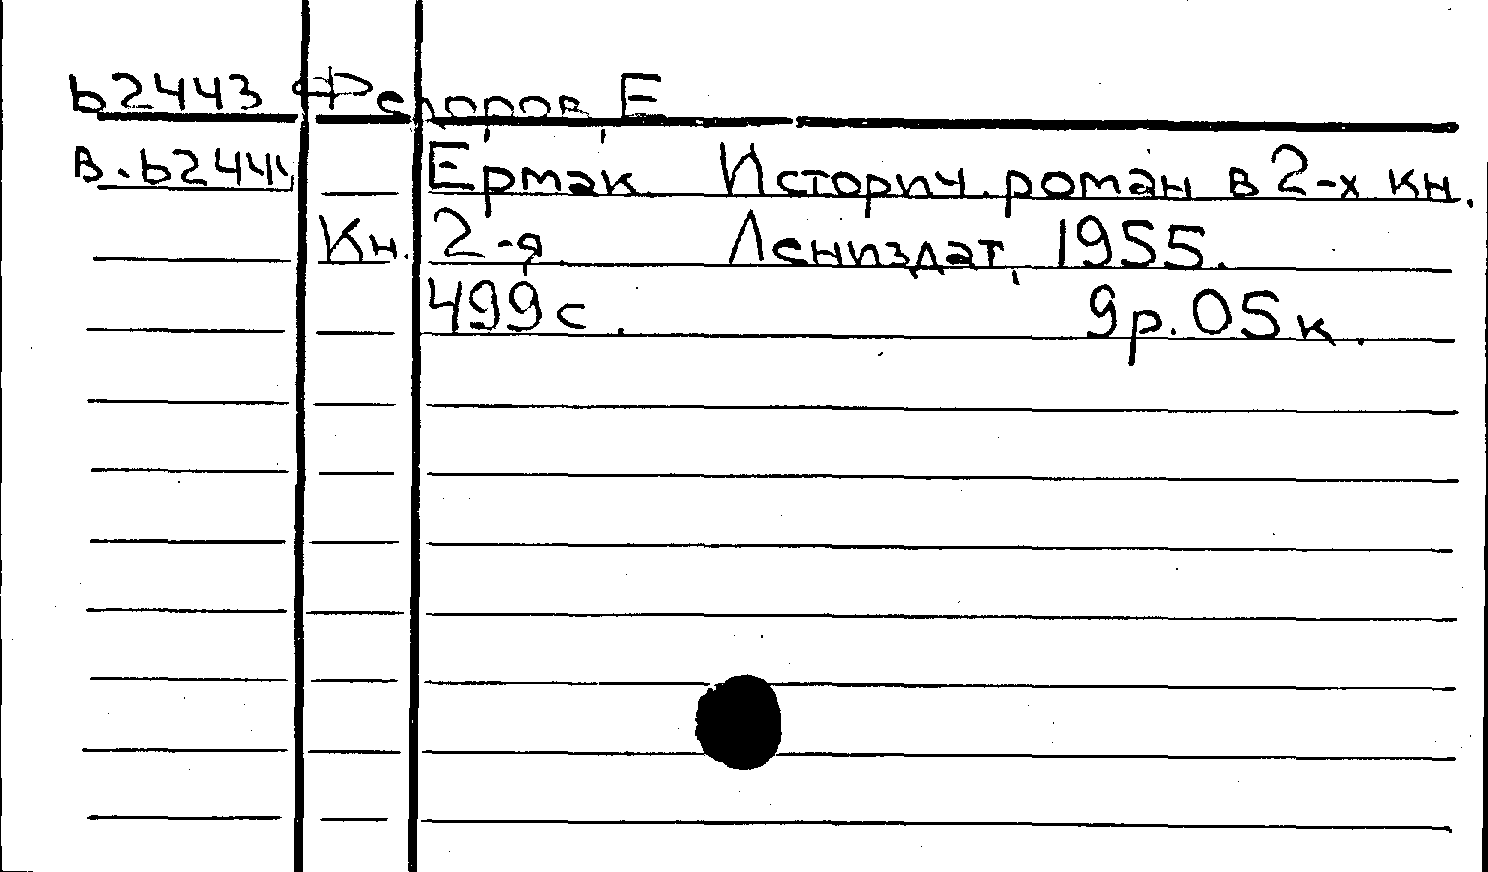 b2443 Федоров, Е.
В. b2444 Ермак. Историч. роман в 2-х кн.
Кн. 2-я Лениздат, 1955.
499 с. 9р. 05к.